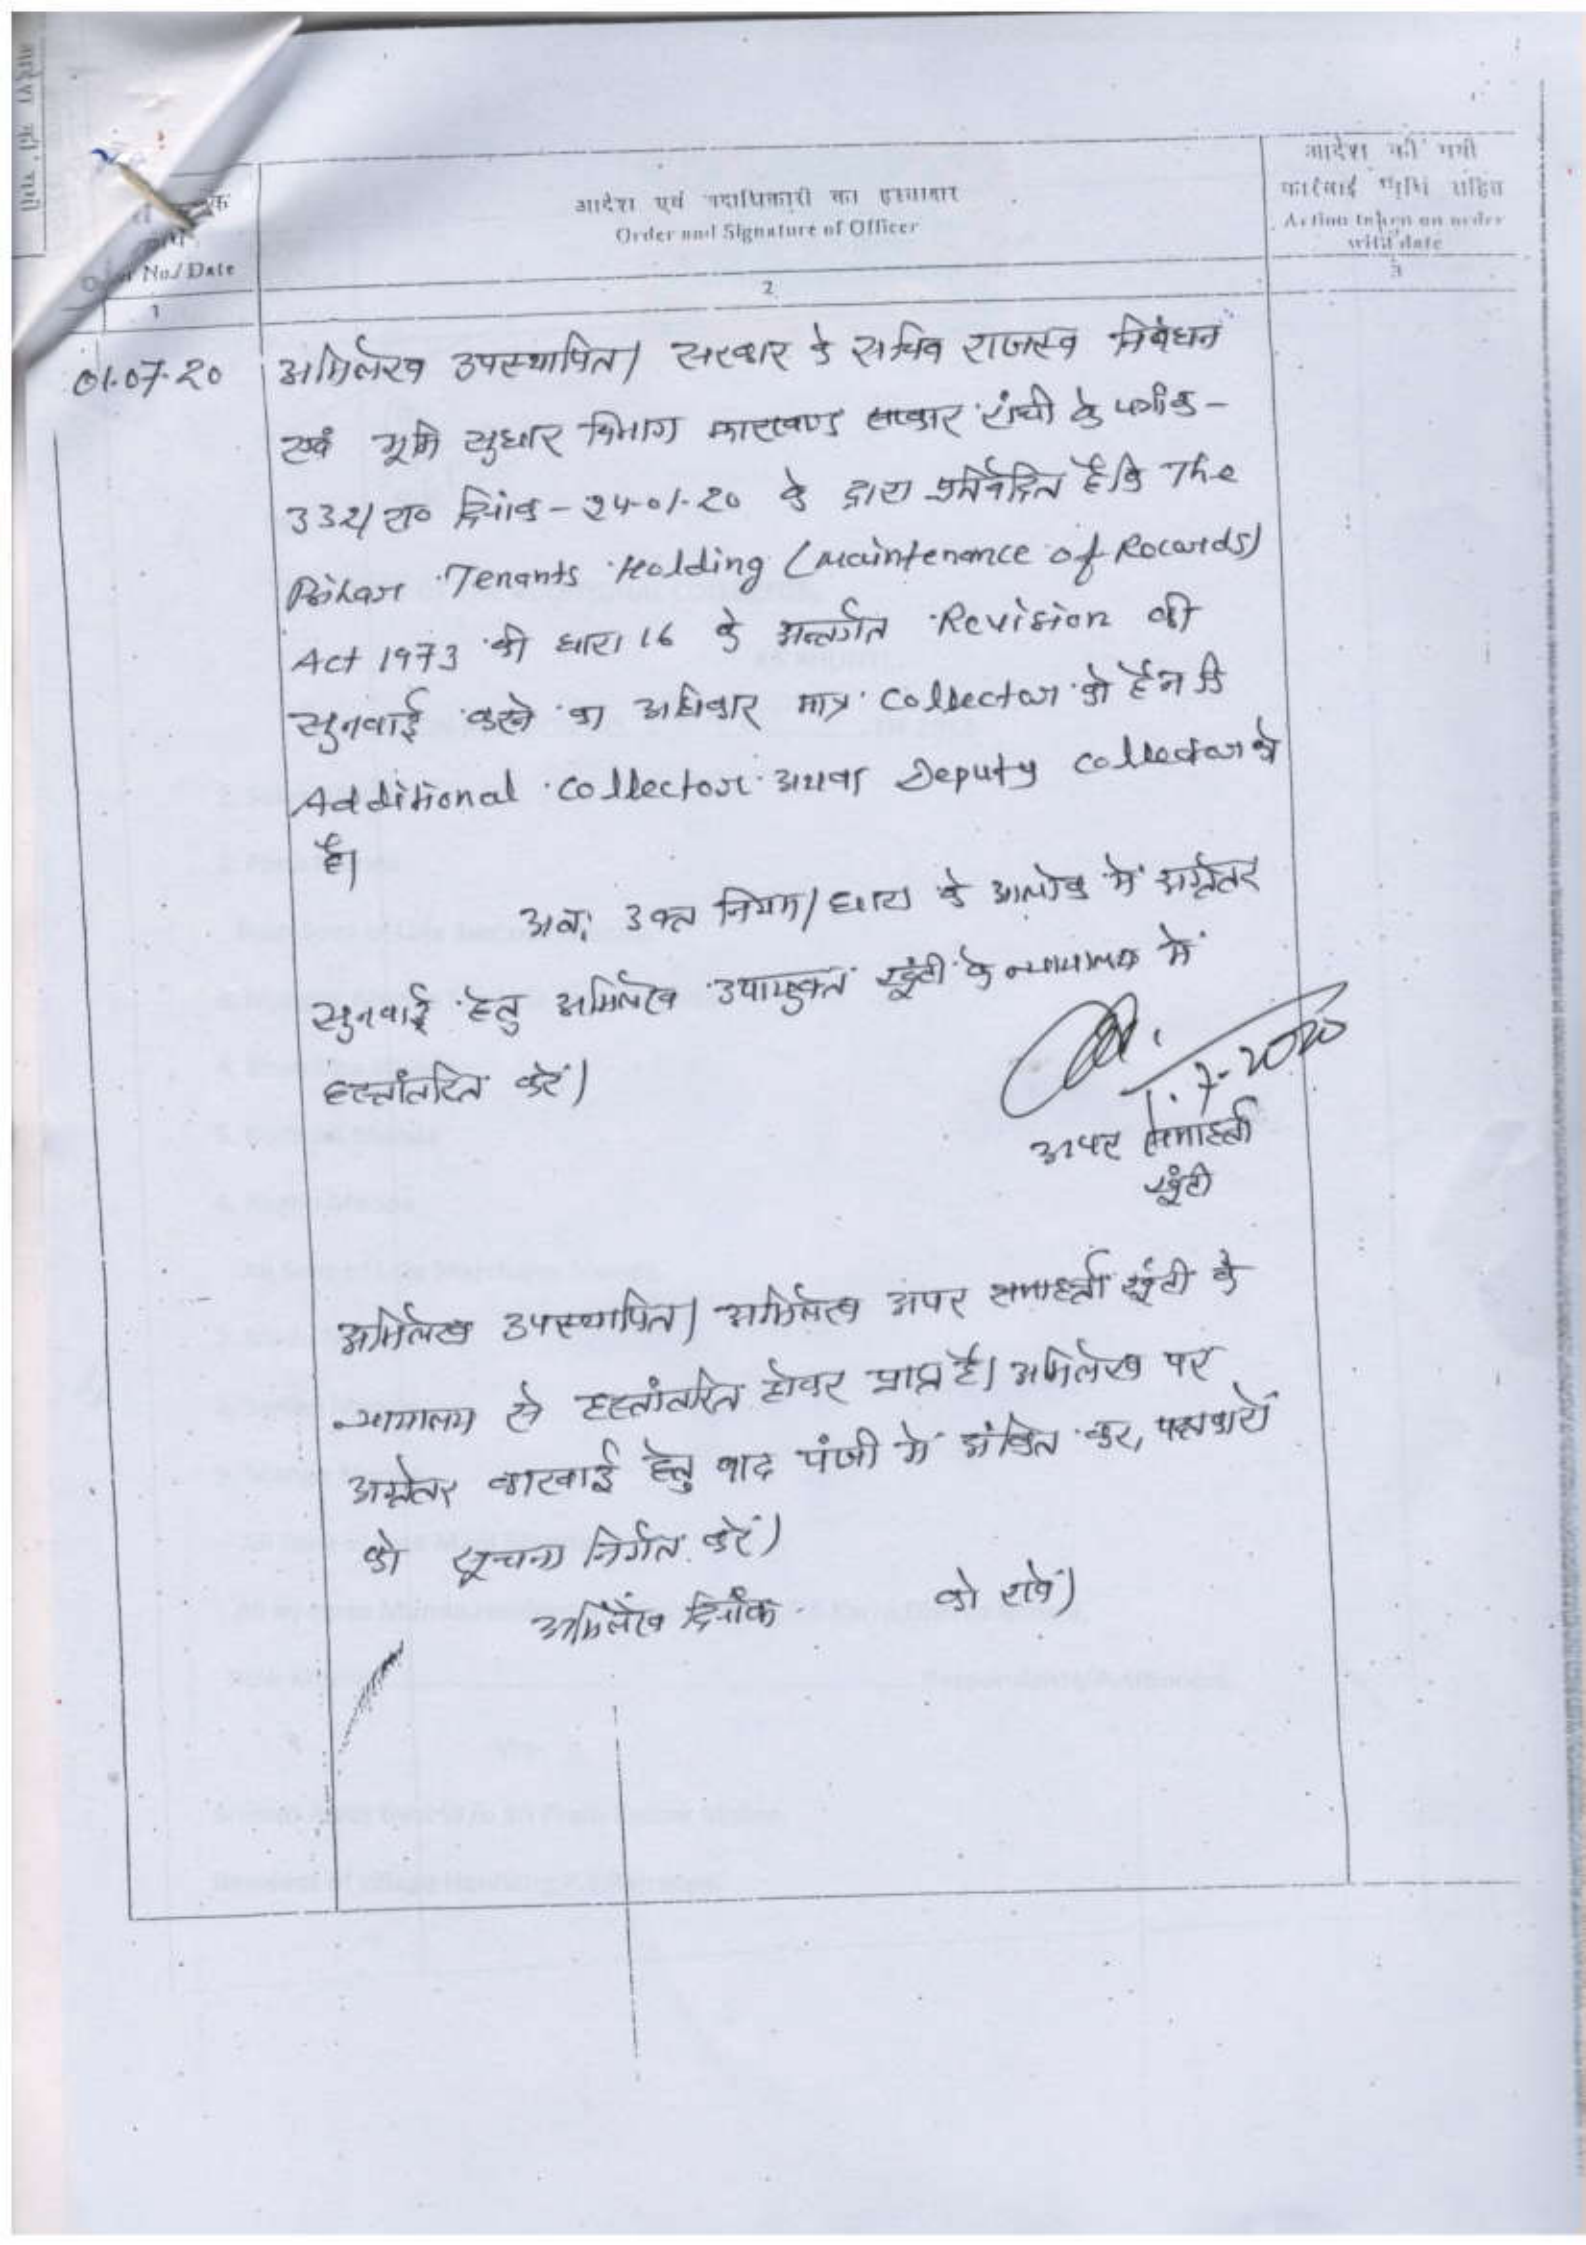 आदेश एवं पदाधिकारी का हस्ताक्षर
Order and Signature of Officer
आदेश की गयी
कार्रवाई सहित
Action taken on order
with date
No./ Date
1
2
3
01.07.20
अभिलेख उपस्थापित। सरकार के सचिव राजस्व निबंधन
एवं भूमि सुधार विभाग झारखण्ड सरकार रांची के पत्रांक-
332/रा० दिनांक - 24-01-20 के द्वारा प्रतिवेदित है कि The
Bihar Tenants Holding (Maintenance of Rocards)
Act 1973 की धारा 16 के अन्तर्गत Revision की
सुनवाई करने का अधिकार मात्र Collector को है न कि
Additional Collector अथवा Deputy Collector को
है।
अतः उक्त नियम/धारा के आलोक में अग्रेतर
सुनवाई हेतु अभिलेख उपायुक्त खूंटी के न्यायालय में
हस्तांतरित करें।
1.7-2020
अपर समाहर्ता
खूंटी
अभिलेख उपस्थापित। अभिलेख अपर समाहर्ता खूंटी के
न्यायालय से हस्तांतरित होकर प्राप्त है। अभिलेख पर
अग्रेतर कारवाई हेतु वाद पंजी में अंकित कर, पक्षकारों
को सूचना निर्गत करें।
अभिलेख दिनांक को रखें।